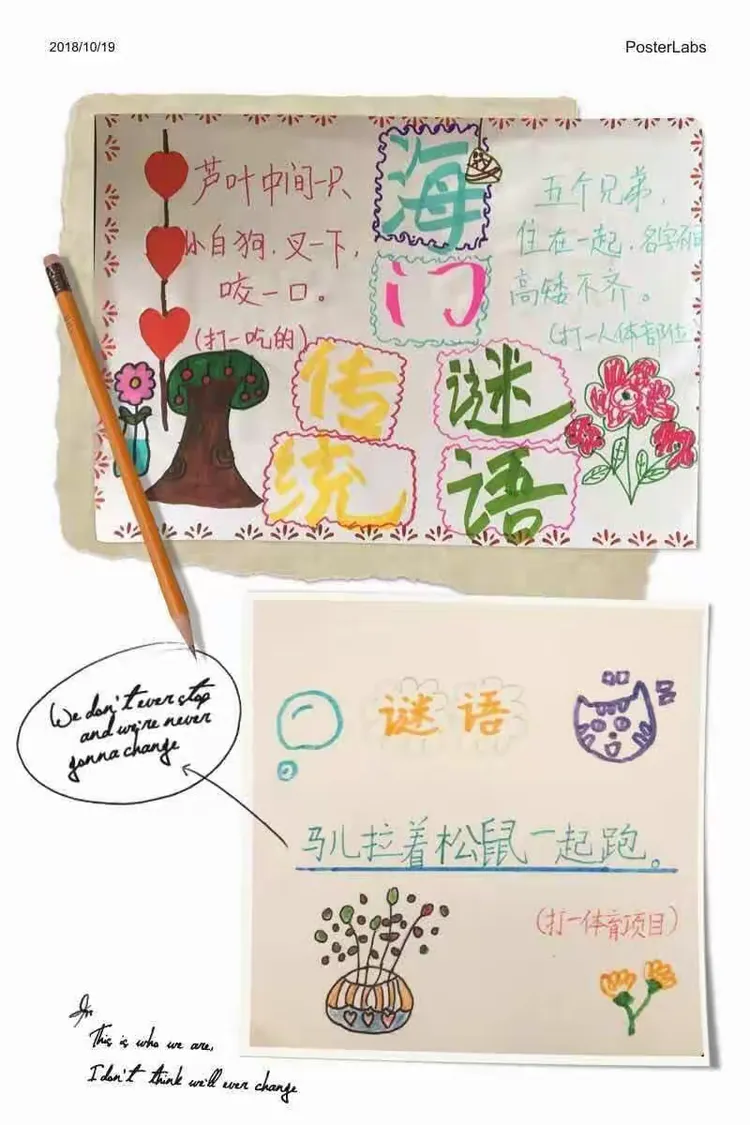 2018/10/19
PosterLabs
芦叶中间一只
小白狗，叉一下，
咬一口。
（打一吃的）
海
门
传
统
谜
语
五个兄弟，
住在一起，名字不同
高矮不齐。
（打一人体部位
谜语
马儿拉着松鼠一起跑。
（打一体育项目）
We don't ever stop
and we're never
gonna change
In
This is who we are,
I don't think we'll ever change